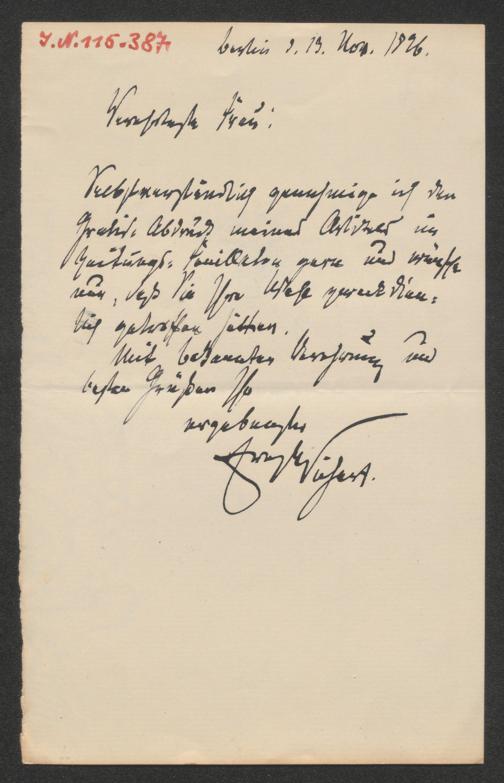 J.N. 115.387
Berlin d. 13. Nov. 1896.
Verehrteste Frau:
Selbstverständlich genehmige ich den
Gratis-Abdruck meines Artikels im
Zeitungs-Feuilleton gern und wünsche
nur, daß Sie Ihre Wahl
getroffen hätten.
Mit bekannter Verehrung und
besten Grüßen Ihr
ergebenster
Ernst Wichert.